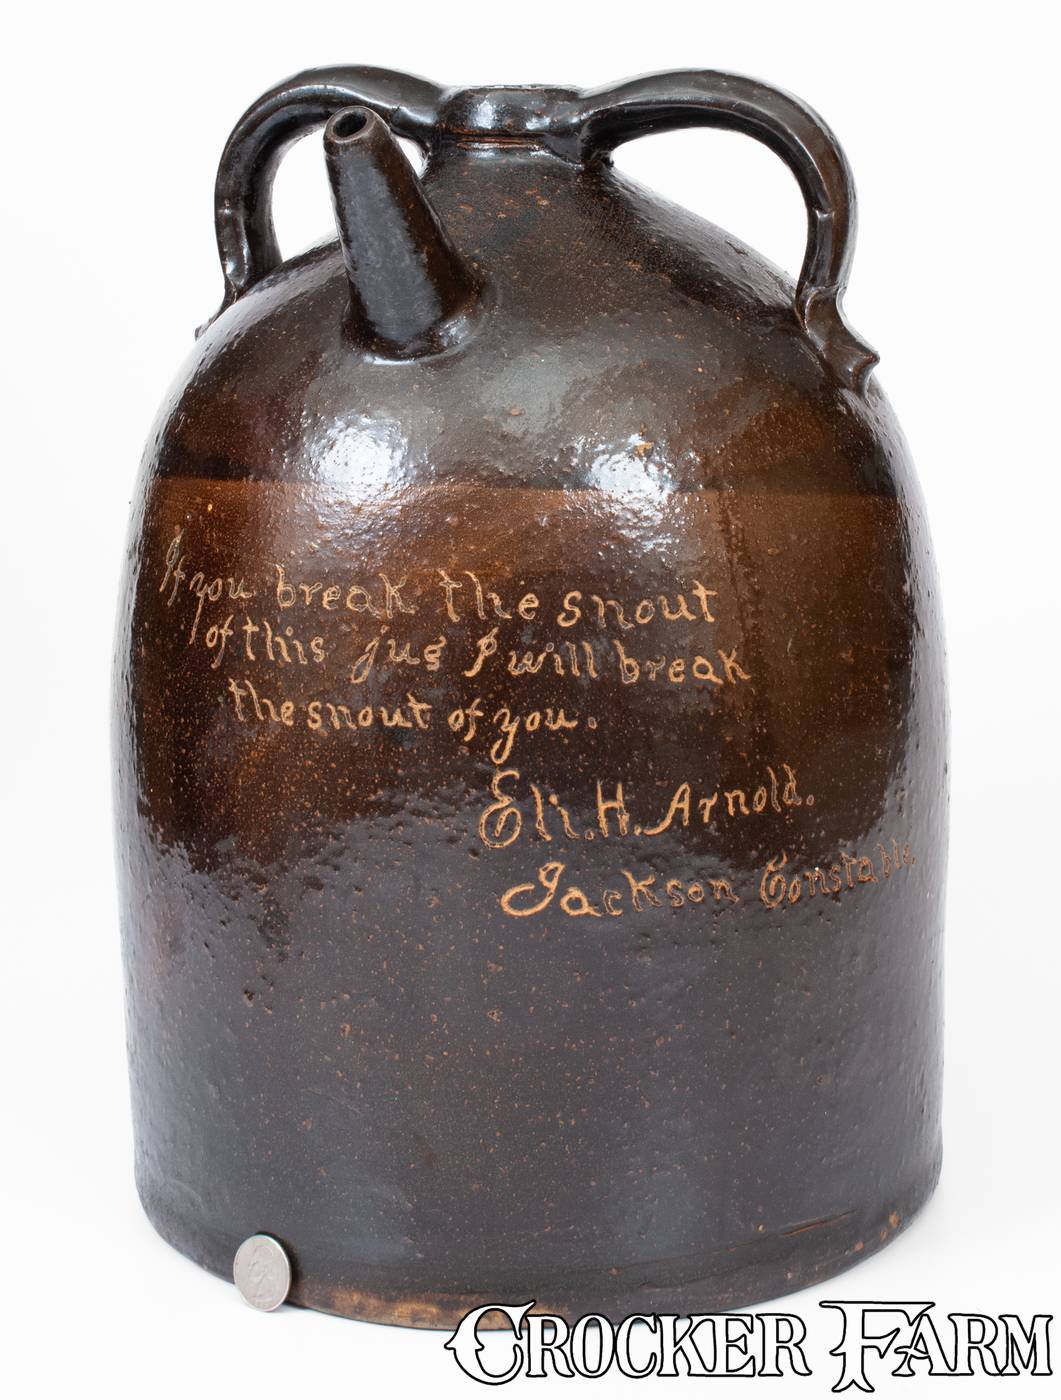 If you break the snout
of this jug I will break
the snout of you.
Eli. H. Arnold.
Jackson Constable.
CROCKER FARM